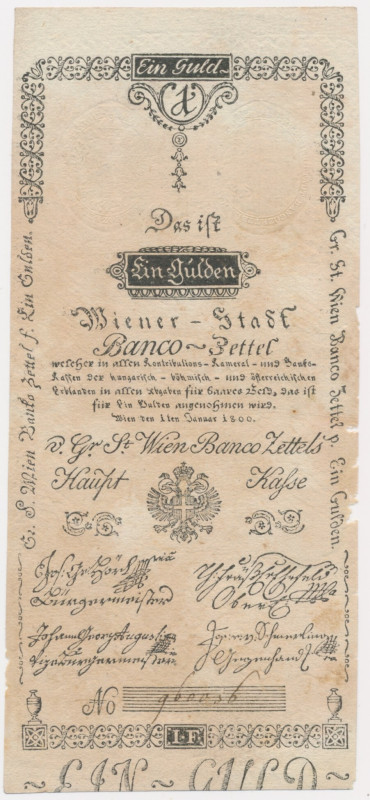 Ein Guld.
1
Das ist
Ein Gulden
Wiener - Stadt
Banco ~ Zettel
welcher in allen Kontributions - Kameral - und Banko-
Kassen der hungarisch - böhmisch - und österreichischen
Erblanden in allen Abgaben für baares Geld, das ist
für Ein Gulden angenohmen wird.
Wien den 1ten Januar 1800.
v. Gr St Wien Banco Zettels
Haupt Kasse
Gr. S. Wien Banko Zettel f. Ein Gulden.
Gr. St. Wien Banco Zettel p. Ein Gulden.
Bürgermeister
Johann Georg Augusti
Vizebürgermeister
No
I.F.
EIN GULD